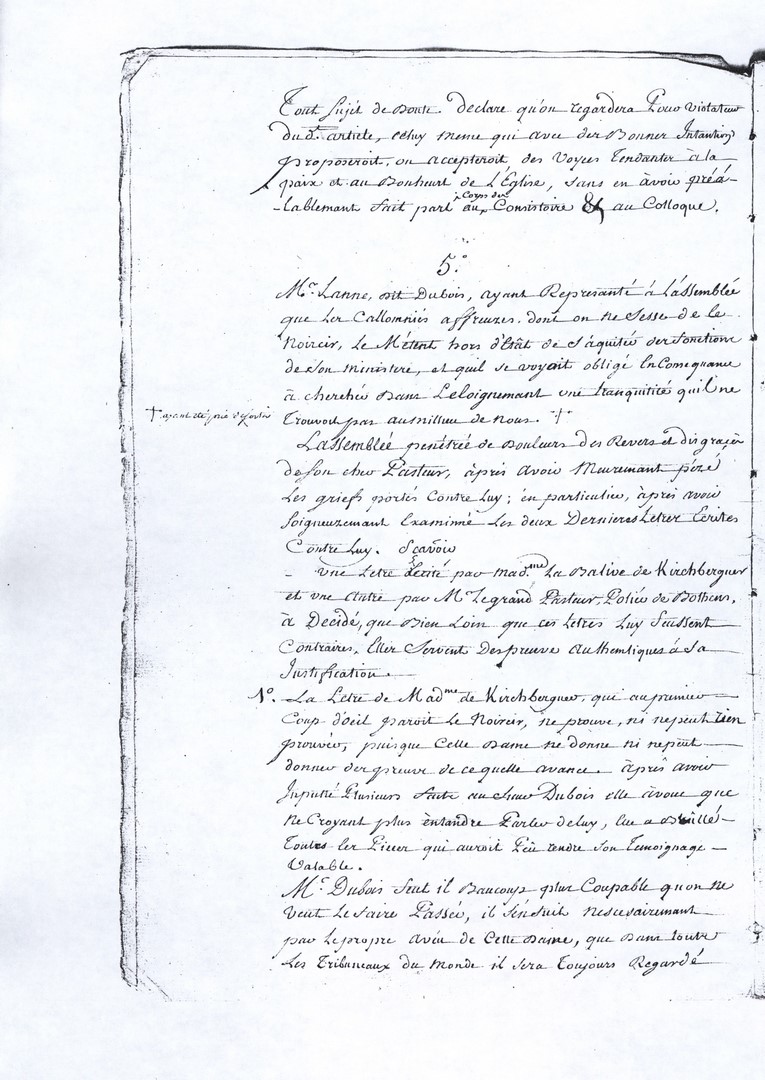 Tout Sujet de Doute. Declare qu'on regardera Pour violateur
du d.t article, celuy meme qui avec des Bonnes Intantions
proposeroit, ou accepteroit des Voyes Tendantes à la
paix et au Bonheur de L'Église, sans en àvoir préà-
-lablemant fait part aux Corps des Consistoire & au Colloque.
5.°
M.r Lanne, dit Dubois, ayant Represanté à Làssemblée
que Les Callomnies affreuzes. dont on ne Sesse de le
Noircir, Le Métent hors d'état de S'àquitér des fonctions
de Son ministere, et quil se voyait obligé En Conséquance
à cherchér Dans Leloignemant une tranquilité qu'il ne
Trouvoit pas au millieu de nous. +
+ ayant été prié de sortir
Làssemblée penétrée de Douleurs des Revers et disgraçes
de son cher Pasteur, àprès avoir Meuremant pézé
Les griefs portés Contre Luy; en particulier, àprès avoir
Soigneuzemant Examiné Les deux Dernieres Letres Ecrites
Contre Luy. Sçavoir
- Une Letre écrité par mad.me La Balive de Kirchberguer
et une Autre par M.r Legrand Pasteur, Poliéz de Bothens,
à Decidé, que Bien Loin que ces Letres Luy Fussent
Contraires, Elles Servent Despreuve Authentiques à Sa
Justification.
N.° La Letre de Mad.me de Kirchberguer, qui au premier
Coup d'oeil paroit Le Noircir, ne prouve, ni ne peut rien
prouvér, puisque Celle Dame ne donne ni ne peut
donner des preuve de ce quelle avance. àprès avoir
Inputé Plusieurs faits au Sieur Dubois elle àvoue que
ne Croyant plus entandre Parler de luy, Elle a Brullé
Toutes les Pieces qui auroit Peu rendre Son Temoignage
Valable.
M.r Dubois Fut il Baucoup plus Coupable qu'on ne
Veut Le faire Passér, il S'én suit Nescesairemant
par Le propre Aveu de Cette Dame, que Dans toutes
Les Tribuneaux du Monde il Sera Toujours Regardé